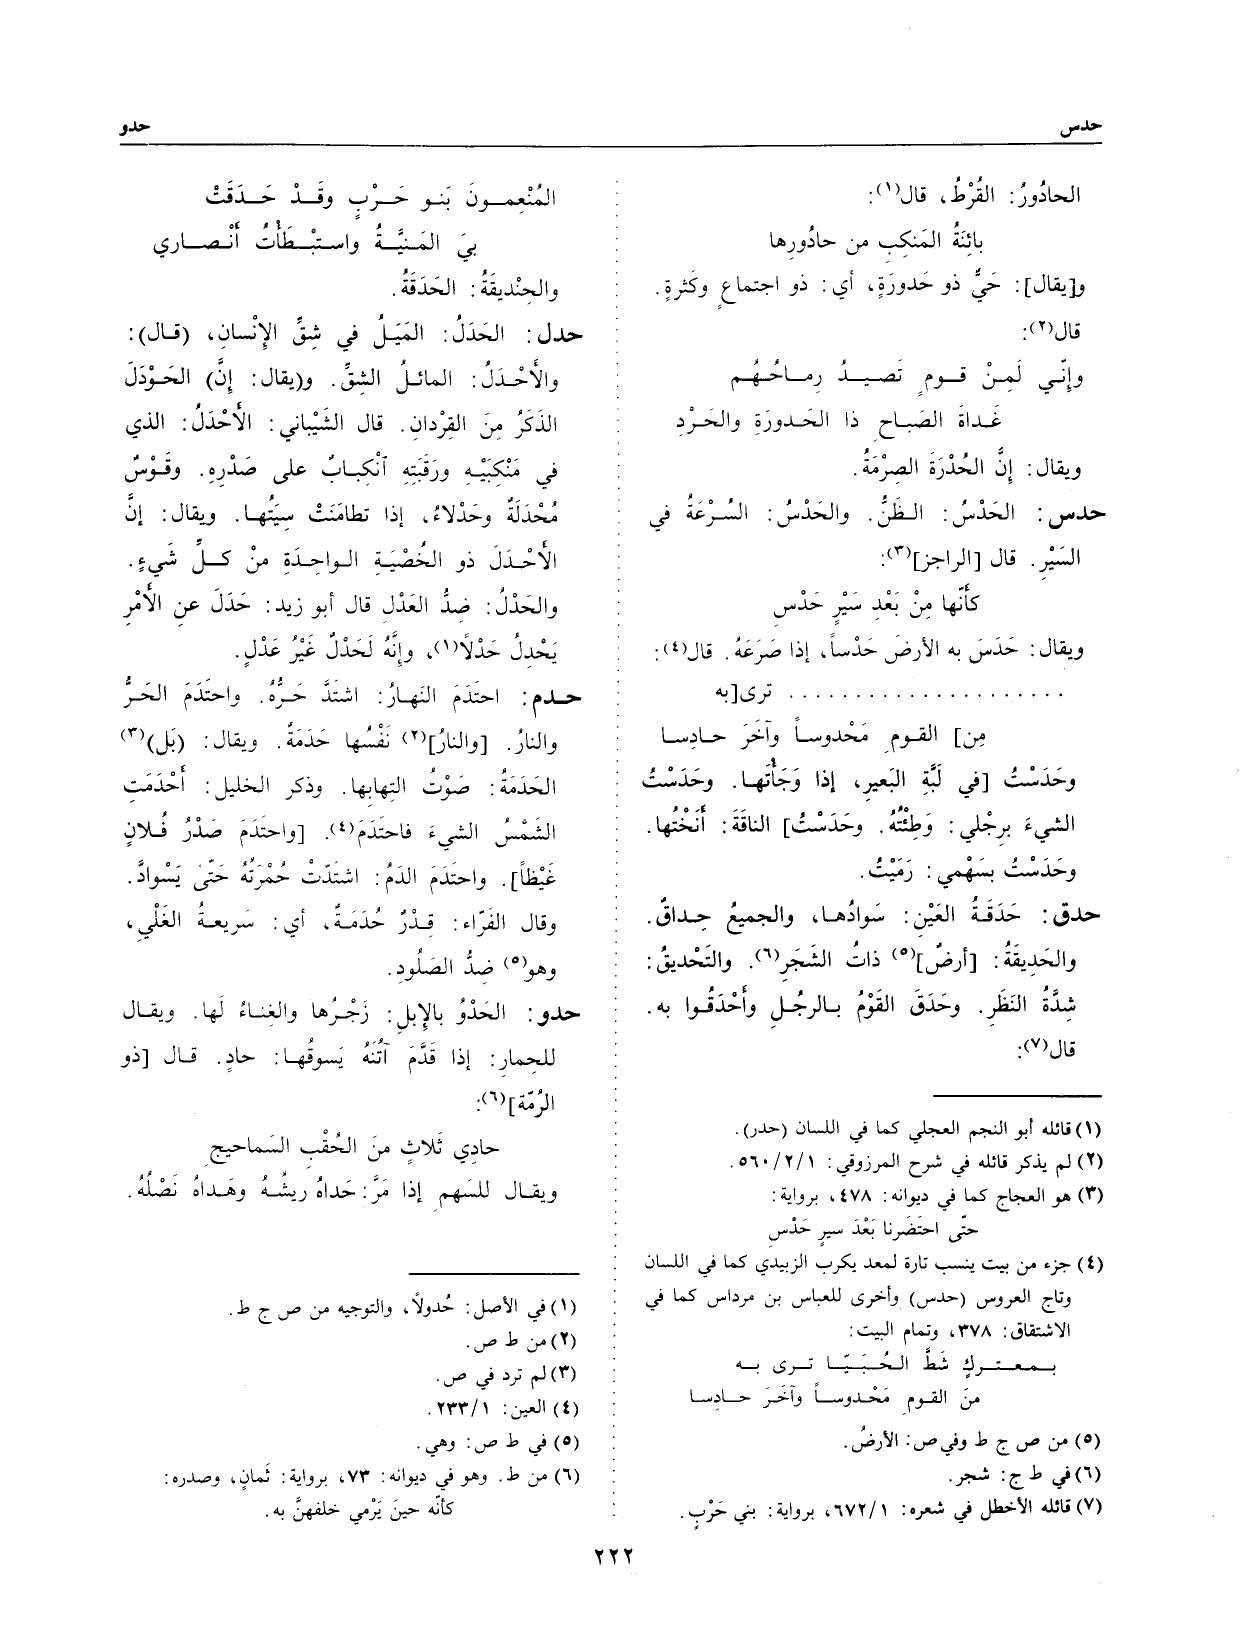 حدس
حدو
الحادُورُ: القُرْطُ، قال(١):
بائِنَةُ المَنكِبِ من حادُورِها
و[يقال]: حَيٌّ ذو حَدورَةٍ، أي: ذو اجتماعٍ وكَثرةٍ.
قال(٢):
وإنّي لَمِنْ قومٍ تَصيدُ رِماحُهُم
غَداةَ الصَباحِ ذا الحَدورَةِ والحَرْدِ
ويقال: إنَّ الحُدْرَةَ الصِرْمَةُ.
حدس: الحَدْسُ: الظَنُّ. والحَدْسُ: السُرْعَةُ في
السَيْرِ. قال [الراجز](٣):
كأنّها مِنْ بَعْدِ سَيْرٍ حَدْسِ
ويقال: حَدَسَ به الأرضَ حَدْساً، إذا صَرَعَهُ. قال(٤):
. . . . . . . . . . . . . . . . . . . . ترى[به
مِن] القومِ مَحْدوساً وآخَرَ حادِسا
وحَدَسْتُ [في لَبَّةِ البَعيرِ، إذا وَجَأْتَها. وحَدَسْتُ
الشيءَ برِجْلي: وَطِئْتُهُ. وحَدَسْتُ] الناقَةَ: أنَخْتُها.
وحَدَسْتُ بسَهْمي: رَمَيْتُ.
حدق: حَدَقَةُ العَيْنِ: سَوادُها، والجميعُ حِداقٌ.
والحَديقَةُ: [أرضٌ](٥) ذاتُ الشَجَرِ(٦). والتَحْديقُ:
شِدَّةُ النَظَرِ. وحَدَقَ القَوْمُ بالرجُلِ وأحْدَقُوا به.
قال(٧):
(١) قائله أبو النجم العجلي كما في اللسان (حدر).
(٢) لم يذكر قائله في شرح المرزوقي: ٥٦٠/٢/١.
(٣) هو العجاج كما في ديوانه: ٤٧٨، برواية:
حتّى احتَضَرنا بَعْدَ سيرٍ حَدْسِ
(٤) جزء من بيت ينسب تارة لمعد يكرب الزبيدي كما في اللسان
وتاج العروس (حدس) وأخرى للعباس بن مرداس كما في
الاشتقاق: ٣٧٨، وتمام البيت:
بمعتركٍ شَطَّ الحُبَيّا ترى به
منَ القومِ مَحْدوساً وآخَرَ حادِسا
(٥) من ص ج ط وفي ص: الأرضُ.
(٦) في ط ج: شجر.
(٧) قائله الأخطل في شعره: ٦٧٢/١، برواية: بني حَرْبٍ.
المُنْعِمونَ بَنو حَرْبٍ وقَدْ حَدَقَتْ
بيَ المَنيَّةُ واستبْطَأْتُ أنْصاري
والحِنْديقَةُ: الحَدَقَةُ.
حدل: الحَدَلُ: المَيَلُ في شِقِّ الإنْسانِ، (قال):
والأحْدَلُ: المائلُ الشقِّ. و(يقال: إنَّ) الحَوْدَلَ
الذَكَرُ مِنَ القِرْدانِ. قال الشَيْباني: الأحْدَلُ: الذي
في مَنْكِبَيْهِ ورَقَبَتِهِ ٱنْكِبابٌ على صَدْرِهِ. وقَوْسٌ
مُحْدَلَةٌ وحَدْلاءُ، إذا تَطامَنَتْ سِيَتُها. ويقال: إنَّ
الأحْدَلَ ذو الخُصْيَةِ الواحِدَةِ منْ كلِّ شَيءٍ.
والحَدْلُ: ضِدُّ العَدْلِ قال أبو زيد: حَدَلَ عن الأمْرِ
يَحْدِلُ حَدْلاً(١)، وإنَّهُ لَحَدْلٌ غَيْرُ عَدْلٍ.
حدم: احتَدَمَ النَهارُ: اشتَدَّ حَرُّهُ. واحتَدَمَ الحَرُّ
والنارُ. [والنارُ](٢) نَفْسُها حَدَمَةٌ. ويقال: (بَل)(٣)
الحَدَمَةُ: صَوْتُ التِهابِها. وذكر الخليل: أحْدَمَتِ
الشَمْسُ الشيءَ فاحتَدَمَ(٤). [واحتَدَمَ صَدْرُ فُلانٍ
غَيْظاً]. واحتَدَمَ الدَمُ: اشتَدّتْ حُمْرَتُهُ حَتّى يَسْوادَّ.
وقال الفَرّاء: قِدْرٌ حُدَمَةٌ، أي: سَريعةُ الغَلْي،
وهو(٥) ضِدُّ الصَلُودِ.
حدو: الحَدْوُ بالإبلِ: زَجْرُها والغِناءُ لَها. ويقال
للحِمارِ: إذا قَدَّمَ آتُنَهُ يَسوقُها: حادٍ. قال [ذو
الرُمّة](٦):
حادِي ثَلاثٍ منَ الحُقْبِ السَماحيجِ
ويقال للسَهمِ إذا مَرَّ: حَداهُ ريشُهُ وهَداهُ نَصْلُهُ.
(١) في الأصل: حُدولاً، والتوجيه من ص ج ط.
(٢) من ط ص.
(٣) لم ترد في ص.
(٤) العين: ٢٣٣/١.
(٥) في ط ص: وهي.
(٦) من ط. وهو في ديوانه: ٧٣، برواية: ثَمانٍ، وصدره:
كأنّه حينَ يَرْمي خلفهنَّ به.
٢٢٢